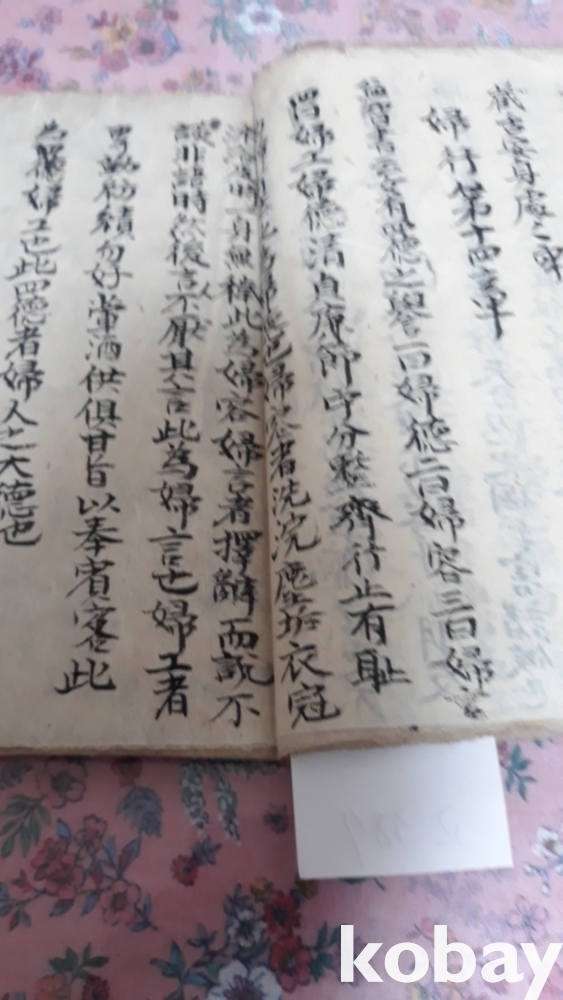 藏吉安身處處牢
婦行扁第十四章
益智書云女有四德之譽一曰婦德二曰婦容三曰婦言
四曰婦工婦德清貞廉節守分整齊行止有耻
婦容者洗浣塵垢衣冠
沐浴及時一身無穢此為婦容婦言者擇辭而說不
談非話時然後言人不厭其言此為婦言也婦工者
勤紡績勿好葷酒供俱甘旨以奉賓客此
為婦工也此四德者婦人之大德也
kobay